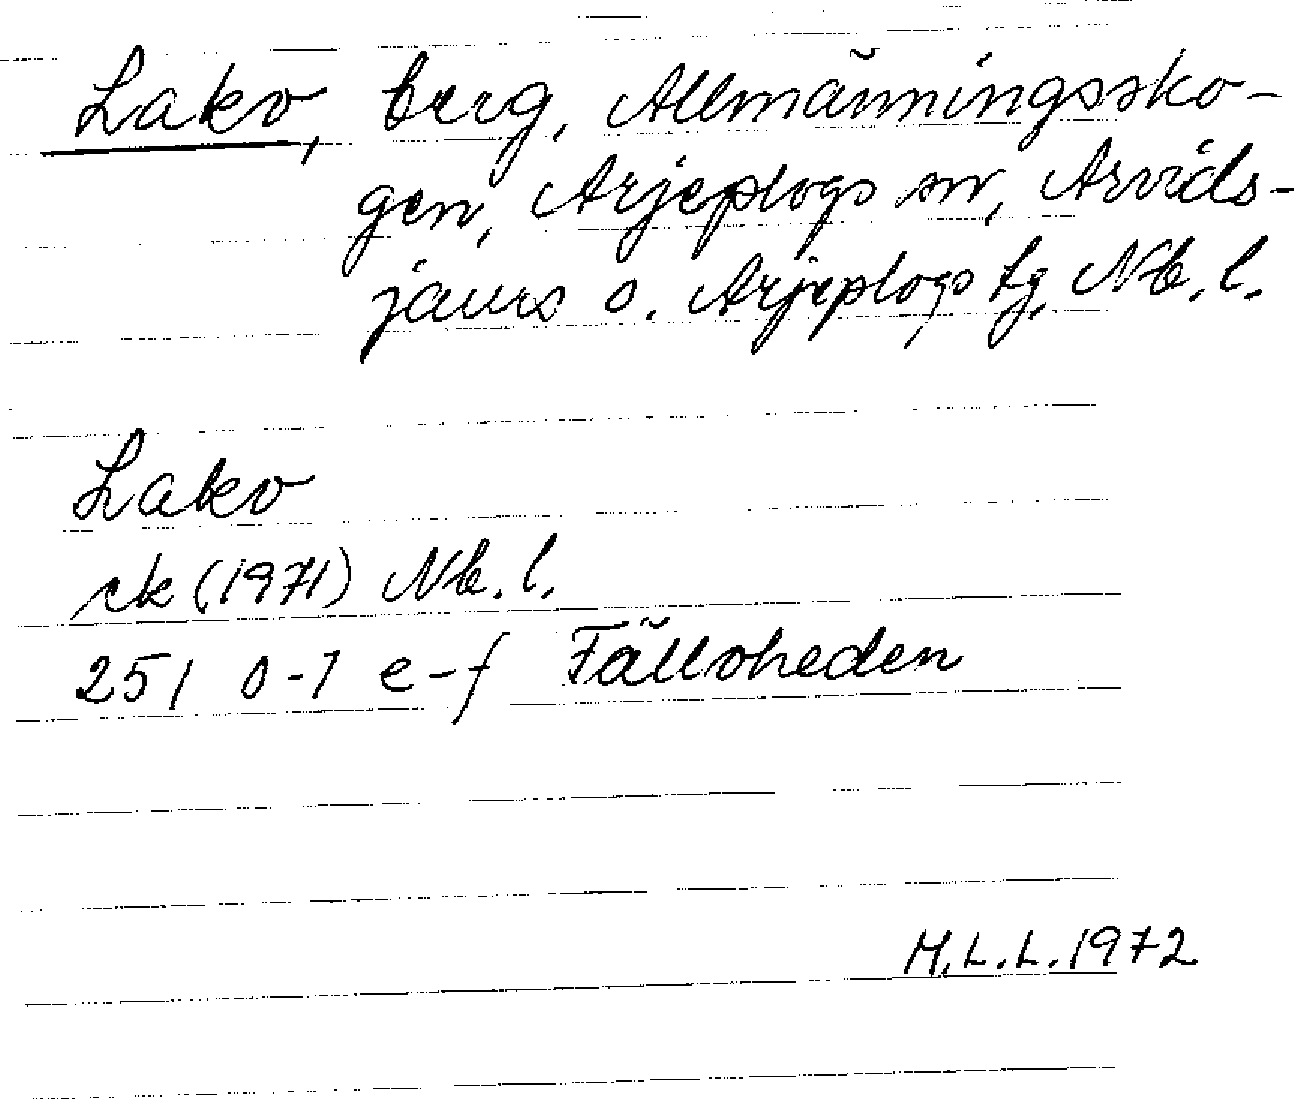 Lakv, berg, Allmänningssko-
gen, Arjeplogs sn, Arvids-
jaurs o. Arjeplogs tg, Nb. l.
Lakv
ek (1971) Nb. l.
251 0-1 e-f Fälloheden
M.L.L. 1972